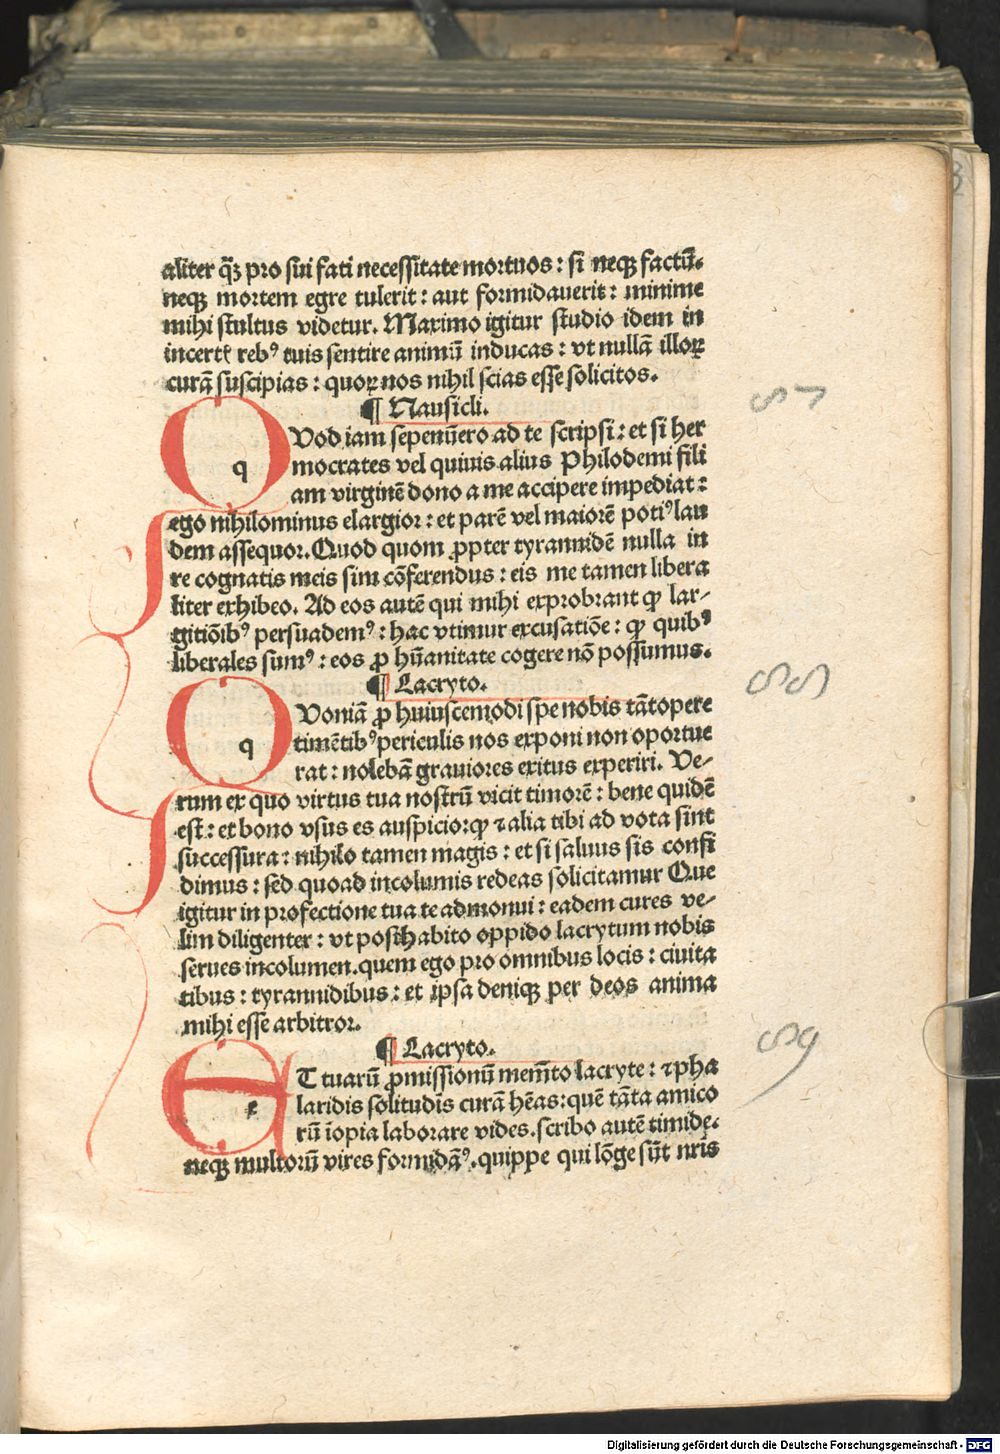 aliter q̄ꝫ pro sui fati necessitate mortuos: si neqꝫ factū.
neqꝫ mortem egre tulerit: aut formidauerit: minime
mihi stultus videtur. Maximo igitur studio idem in
incert̄ꝭ reb⁹ tuis sentire animū inducas: vt nullā illoꝝ
curā suscipias: quoꝝ nos nihil scias esse solicitos.
¶ Nausicli.
q
QVod iam sepenūero ad te scripsi: et si her
mocrates vel quiuis alius Philodemi fili
am virginē dono a me accipere impediat:
ego nihilominus elargior: et parē vel maiorē poti⁹ lau
dem assequor. Quod quom ꝓpter tyrannidē nulla in
re cognatis meis sim cōferendus: eis me tamen libera
liter exhibeo. Ad eos autē qui mihi exprobrant ꝙ lar-
gitiōib⁹ persuadem⁹: hac vtimur excusatiōe: ꝙ quib⁹
liberales sum⁹: eos ꝓ hūanitate cogere nō possumus.
¶ Lacryto.
q
QVoniā ꝓ huiuscemodi spe nobis tātopere
timētib⁹ periculis nos exponi non oportue
rat: nolebā grauiores exitus experiri. Ve-
rum ex quo virtus tua nostrū vicit timorē: bene quidē
est: et bono vsus es auspicio: ꝙ ⁊ alia tibi ad vota sint
successura: nihilo tamen magis: et si saluus sis confi
dimus: sed quoad incolumis redeas solicitamur Que
igitur in profectione tua te admonui: eadem cures ve-
lim diligenter: vt posthabito oppido lacrytum nobis
serues incolumen. quem ego pro omnibus locis: ciuita
tibus: tyrannidibus: et ipsa deniqꝫ per deos anima
mihi esse arbitror.
¶ Lacryto.
e
ET tuarū ꝓmissionū mem̄to lacryte: ⁊ pha
laridis solitudīs curā hēas: quē tāta amico
rū īopia laborare vides. scribo autē timide.
neqꝫ multorū vires formidā⁹. quippe qui lōge sūt nr̄is
57
58
59
Digitalisierung gefördert durch die Deutsche Forschungsgemeinschaft - DFG